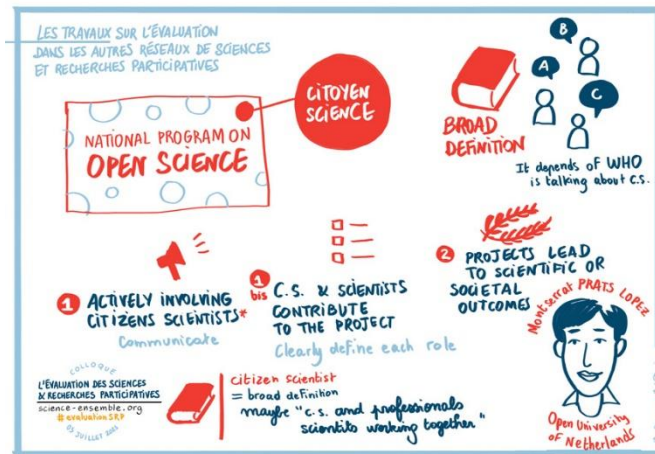 LES TRAVAUX SUR L'ÉVALUATION
DANS LES AUTRES RÉSEAUX DE SCIENCES
ET RECHERCHES PARTICIPATIVES
NATIONAL PROGRAM ON
OPEN SCIENCE
CITOYEN
SCIENCE
BROAD
DEFINITION
B
A
C
It depends of WHO
is talking about c.s.
1 ACTIVELY INVOLVING
CITIZENS SCIENTISTS*
Communicate
1 bis C.S. & SCIENTISTS
CONTRIBUTE
TO THE PROJECT
Clearly define each role
2 PROJECTS LEAD
TO SCIENTIFIC OR
SOCIETAL
OUTCOMES
Montserrat PRATS LOPEZ
Open University
of Netherlands
COLLOQUE
L'ÉVALUATION DES SCIENCES
& RECHERCHES PARTICIPATIVES
science-ensemble.org
#evaluationSRP
JUILLET
*
citizen scientist
= broad definition
maybe "c.s. and professionals
scientits working together"